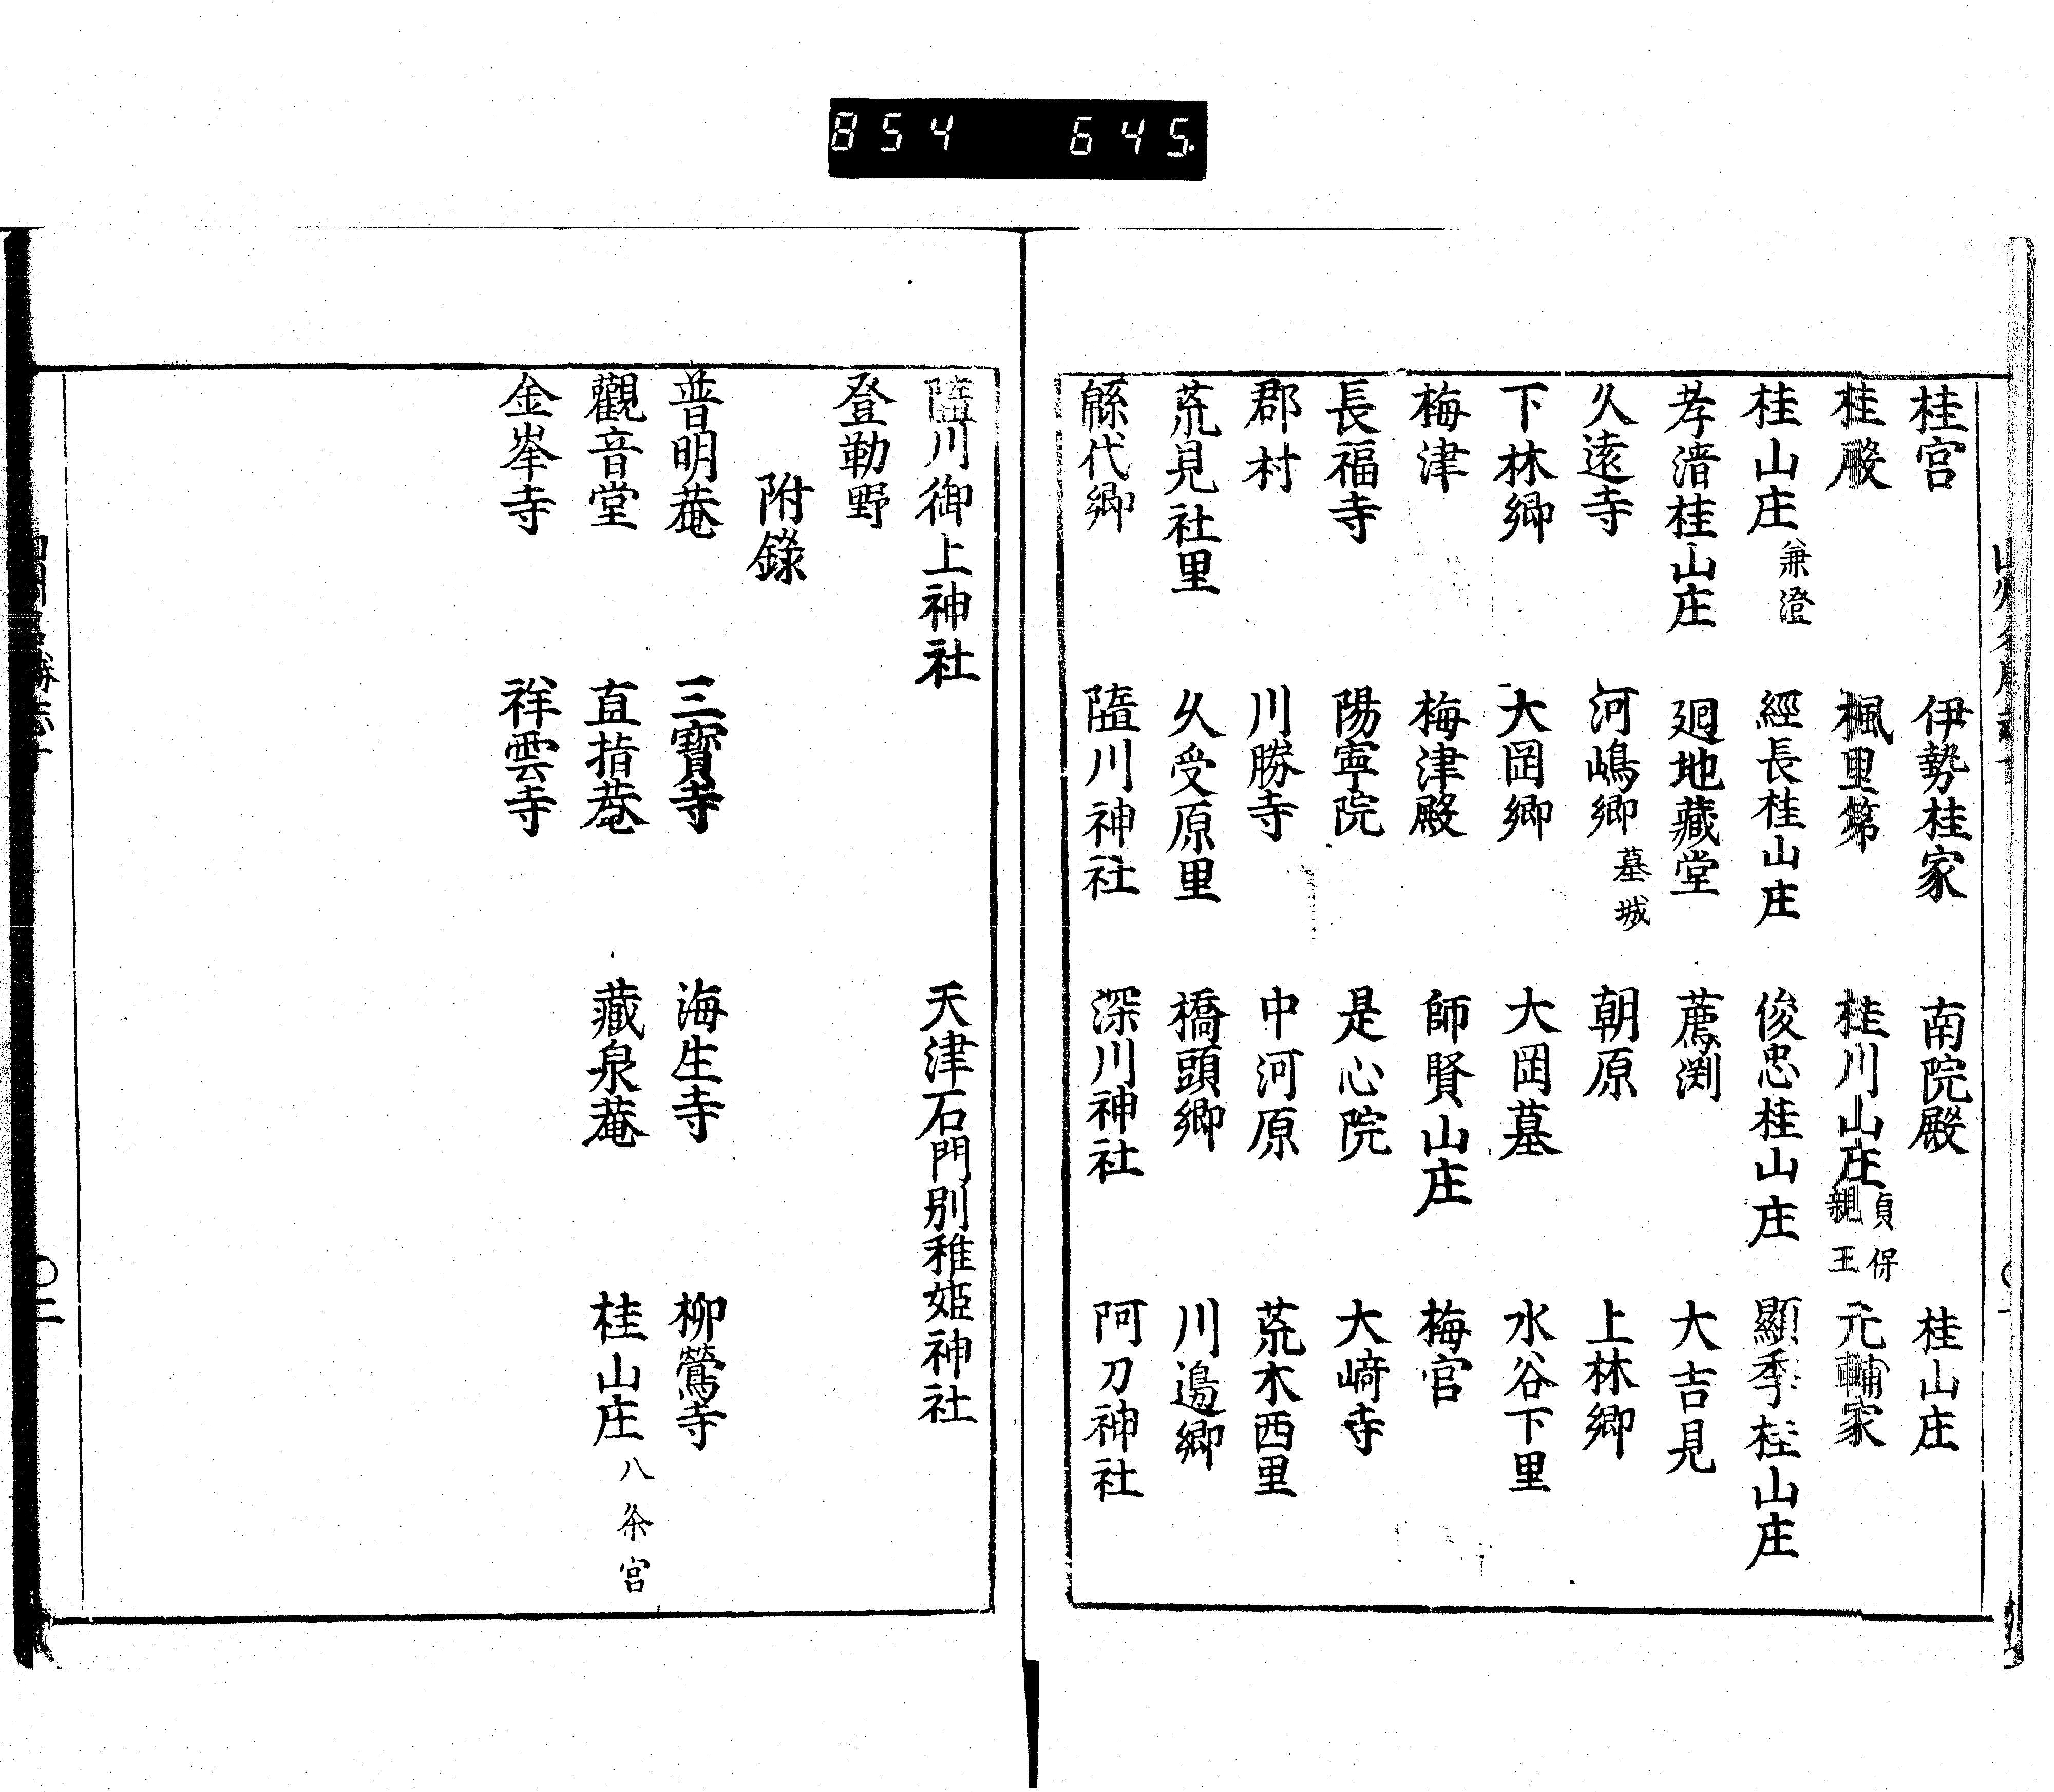 854 645.
桂宮 伊勢桂家 南院殿 桂山庄
桂殿 楓里第 桂川山庄 貞保親王 元輔家
桂山庄 兼澄 經長桂山庄 俊忠桂山庄 顯季桂山庄
孝清桂山庄 廻地藏堂 薦渕 大吉見
久遠寺 河嶋卿 墓城 朝原 上林卿
下林卿 大岡卿 大岡墓 水谷下里
梅津 梅津殿 師賢山庄 梅宮
長福寺 陽寧院 是心院 大﨑寺
郡村 川勝寺 中河原 荒木西里
荒見社里 久受原里 橋頭卿 川邉卿
緜代卿 隨川神社 深川神社 阿刀神社
隨川御上神社 天津石門别稚姫神社
登勒野
附錄
普明菴 三寶寺 海生寺 柳鶯寺
觀音堂 直指菴 藏泉菴 桂山庄 八条宮
金峯寺 祥雲寺